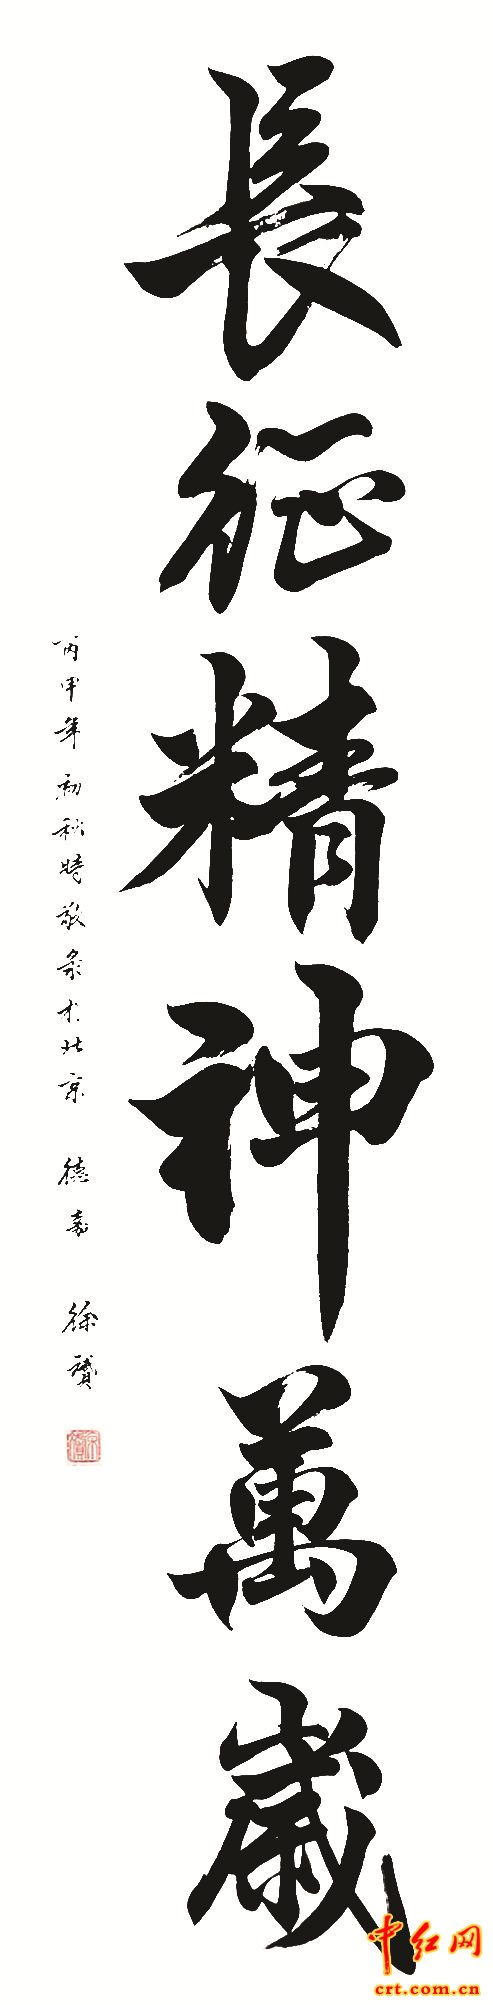 長征精神萬歲
丙申年初秋時敬录於北京 德嘉 徐寶
中红网
crt.com.cn